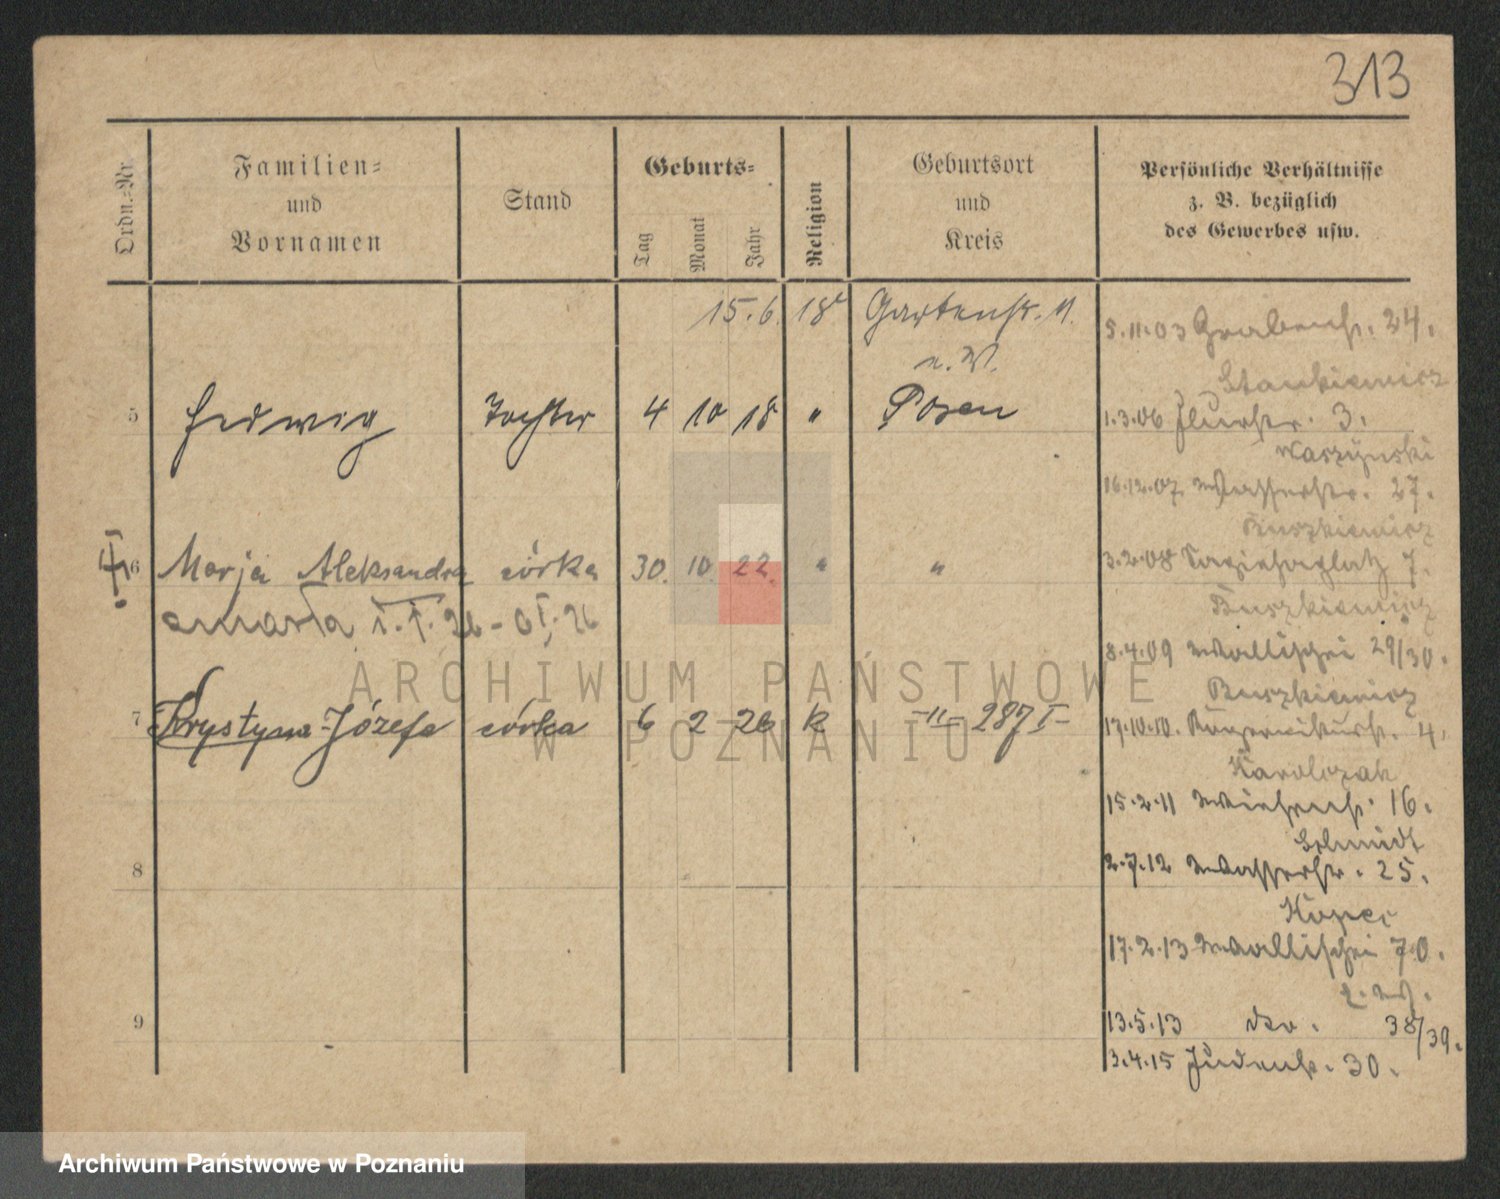 313
Ordn.-Nr.
Familien-
und
Vornamen
Stand
Geburts-
Tag
Monat
Jahr
Religion
Geburtsort
und
Kreis
Persönliche Verhältnisse
z. B. bezüglich
des Gewerbes usw.
15.6. 18 Gartenstr. 11.
n. W.
5 Hedwig Tochter 4 10 18 " Posen
6 Marja Aleksandra córka 30. 10. 22. " "
zmarła
7 Krystyna-Józefa córka 6 2 26 k -"- 287 I-
8
9
5.11.03 Grabenstr. 24.
Stankiewicz
1.3.06 Flurstr. 3.
Waszynski
16.12.07 Wasserstr. 27.
Buszkiewicz
3.2.08 Sapiehaplatz 7.
Buszkiewicz
8.4.09 Wallischei 29/30.
Buszkiewicz
17.10.10. 4.
Karolczak
15.2.11 Wiesenstr. 16.
Schmidt
2.7.12 Wasserstr. 25.
17.2.13 Wallischei 70.
13.5.13 dto. 38/39.
3.4.15 Judenstr. 30.
ARCHIWUM PAŃSTWOWE
W POZNANIU
Archiwum Państwowe w Poznaniu